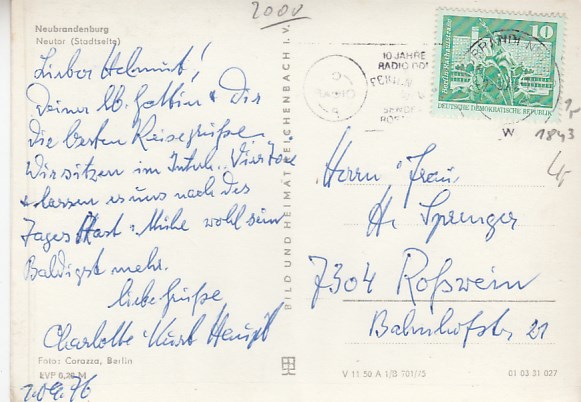 2000
Neubrandenburg
Neutor (Stadtseite)
Lieber Helmut!
Deiner lb. Gattin & Dir
die besten Reisegrüße.
Wir sitzen im Inturh. Vier Tore
& lassen es uns nach des
Tages Hast & Mühe wohl sein
Baldigst mehr.
liebe Grüße
Charlotte & Kurt
Foto: Corazza, Berlin
EVP 0,20 M
1.09.76
BILD UND HEIMAT REICHENBACH I. V.
10 JAHRE
RADIO
DDR
BERLIN
10
DEUTSCHE DEMOKRATISCHE REPUBLIK
W
1843
4,-
Herrn & Frau
H. Sprenger
7304 Roßwein
Bahnhofstr 21
V 11 50 A 1/B 701/75
01 03 31 027